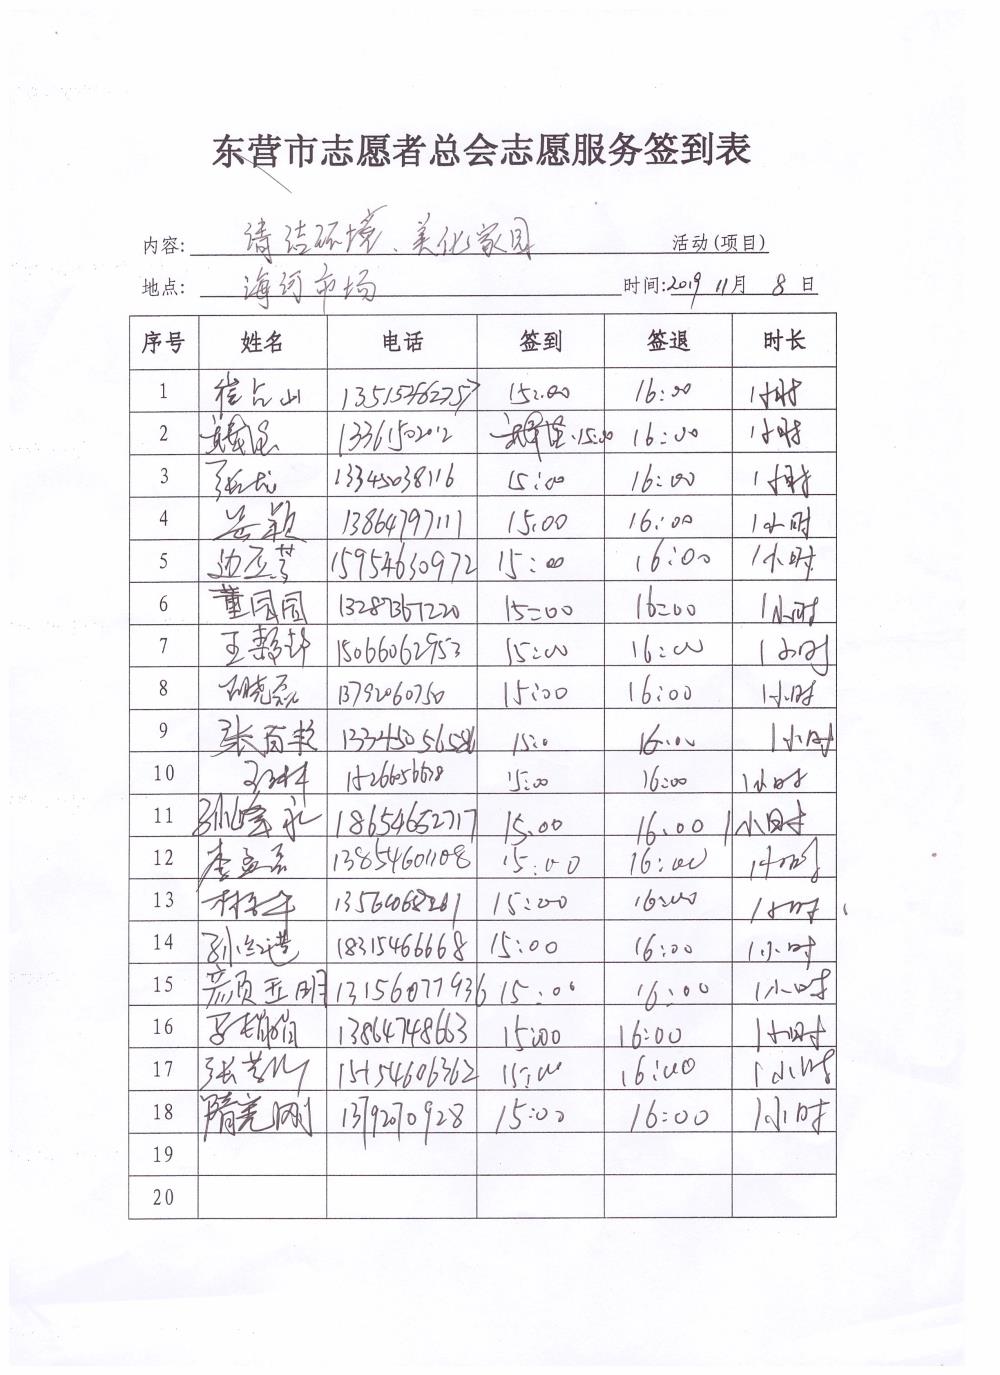 东营市志愿者总会志愿服务签到表
内容: 清洁环境、美化家园 活动(项目)
地点: 海河市场 时间:2019 11月 8日
序号 姓名 电话 签到 签退 时长
1 崔占山 15:00 16:00 1小时
2 13361502012 15:00 16:00 1小时
3 张龙 13345038116 15:00 16:00 1小时
4 13864797111 15:00 16:00 1小时
5 15954630972 15:00 16:00 1小时
6 董园园 13287367220 15:00 16:00 1小时
7 15066062953 15:00 16:00 1小时
8 胡晓磊 13792060750 15:00 16:00 1小时
9 15:0 16:00 1小时
10 15266056628 15:00 16:00 1小时
11 孙峰永 18654652717 15:00 16:00 1小时
12 13854601108 15:00 16:00 1小时
13 15:00 16:00 1小时
14 18315466668 15:00 16:00 1小时
15 颜亚明 13156077936 15:00 16:00 1小时
16 13864748663 15:00 16:00 1小时
17 15154606362 15:00 16:00 1小时
18 隋亮刚 1379270928 15:00 16:00 1小时
19
20